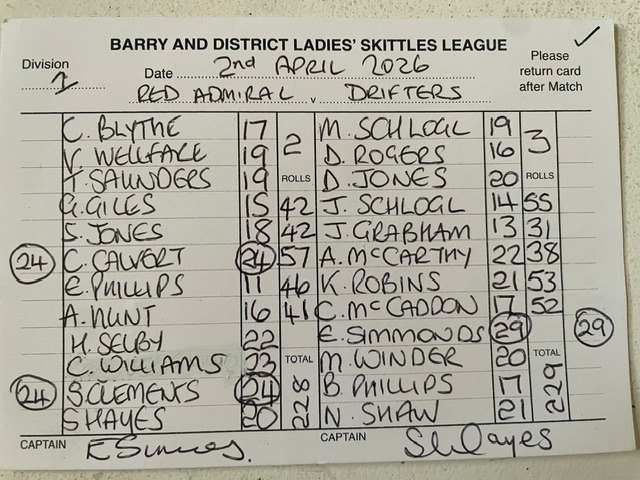 BARRY AND DISTRICT LADIES' SKITTLES LEAGUE
Division 2
Date 2nd APRIL 2026
Please return card after Match
RED ADMIRAL v DRIFTERS
C. BLYTHE 17 2 M. SCHLOGL 19 3
V. WELLFARE 19 D. ROGERS 16
T. SAUNDERS 19 ROLLS D. JONES 20 ROLLS
G. GILES 15 42 J. SCHLOGL 14 55
S. JONES 18 42 J. GRABHAM 13 31
24 C. CALVERT 24 57 A. McCARTHY 22 38
E. PHILLIPS 11 46 K. ROBINS 21 53
A. HUNT 16 41 C. McCADDON 17 52
H. SELBY 22 E. SIMMONDS 29 29
C. WILLIAMS 23 TOTAL M. WINDER 20 TOTAL
24 S. CLEMENTS 24 228 B. PHILLIPS 17 229
S HAYES 20 N. SHAW 21
CAPTAIN CAPTAIN